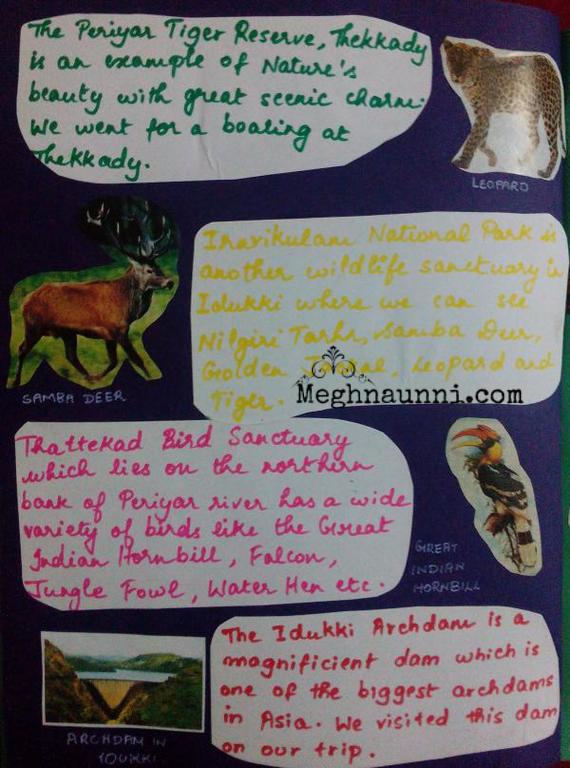 The Periyar Tiger Reserve, Thekkady
is an example of Nature's
beauty with great scenic charm.
We went for a boating at
Thekkady.
LEOPARD
Iravikulam National Park is
another wildlife sanctuary in
Idukki where we can see
Nilgiri Tarhr, Samba Deer,
Golden Jackal, Leopard and
Tiger.
SAMBA DEER
Meghnaunni.com
Thattekad Bird Sanctuary
which lies on the northern
bank of Periyar river has a wide
variety of birds like the Great
Indian Hornbill, Falcon,
Jungle Fowl, Water Hen etc.
GREAT
INDIAN
HORNBILL
The Idukki Archdam is a
magnificient dam which is
one of the biggest archdams
in Asia. We visited this dam
on our trip.
ARCHDAM IN
IDUKKI